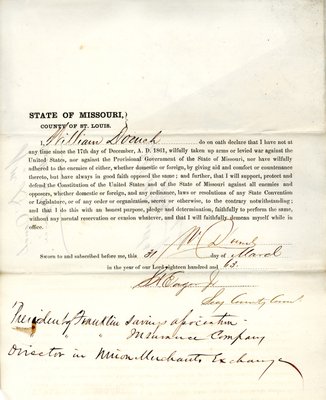 STATE OF MISSOURI,
COUNTY OF ST. LOUIS.
William do on oath declare that I have not at
any time since the 17th day of December, A. D. 1861, wilfully taken up arms or levied war against the
United States, nor against the Provisional Government of the State of Missouri, nor have wilfully
adhered to the enemies of either, whether domestic or foreign, by giving aid and comfort or countenance
thereto, but have always in good faith opposed the same; and further, that I will support, protect and
defend the Constitution of the United States and of the State of Missouri against all enemies and
opposers, whether domestic or foreign, and any ordinance, laws or resolutions of any State Convention
or Legislature, or of any order or organization, secret or otherwise, to the contrary notwithstanding;
and that I do this with an honest purpose, pledge and determination, faithfully to perform the same,
without any mental reservation or evasion whatever, and that I will faithfully demean myself while in
office.
Wm
Sworn to and subscribed before me, this 31 day of March
in the year of our Lord eighteen hundred and 63.
County Court
President of Franklin Savings Association
" " " Insurance Company
Director in Union Merchants Exchange